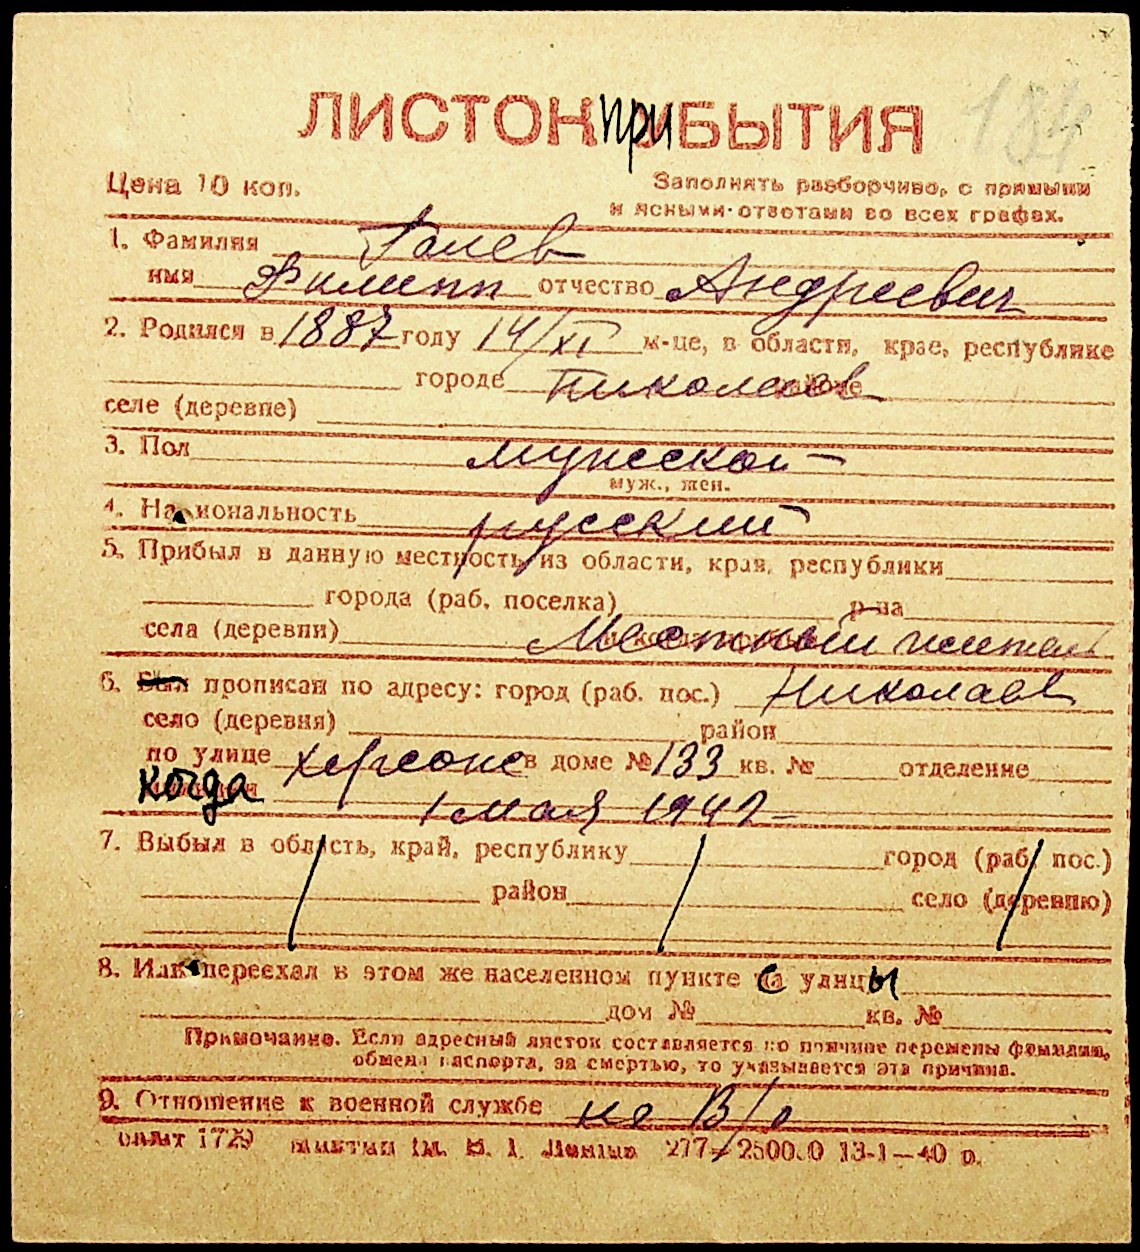 ЛИСТОК ПРИБЫТИЯ 184
Цена 10 коп. Заполнять разборчиво, с прямыми
и ясными ответами во всех графах.
1. Фамилия Галев
имя Филипп отчество Андреевич
2. Родился в 1887 году 14/XI м-це, в области, крае, республике
городе Николаев районе
селе (деревне)
3. Пол мужской
муж., жен.
4. Национальность русский
5. Прибыл в данную местность из области, края, республики
города (раб. поселка) р-на
села (деревни) Местный житель
6. Был прописан по адресу: город (раб. пос.) Николаев
село (деревня) район
по улице Херсонс в доме № 133 кв. № отделение
когда 1 мая 1942
7. Выбыл в область, край, республику город (раб. пос.)
район село (деревню)
8. Или переехал в этом же населенном пункте с улицы
дом № кв. №
Примечание. Если адресный листок составляется по причине перемены фамилии,
обмена паспорта, за смертью, то указывается эта причина.
9. Отношение к военной службе не в/о
1729 им. В. І. Леніна 277—250000 13-1—40 р.